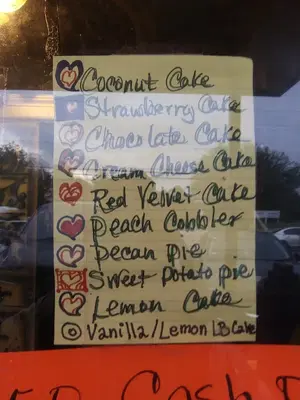 Coconut Cake
Strawberry Cake
Chocolate Cake
Cream Cheese Cake
Red Velvet Cake
Peach Cobbler
Pecan Pie
Sweet Potato Pie
Lemon Cake
Vanilla/Lemon LB Cake
Cash